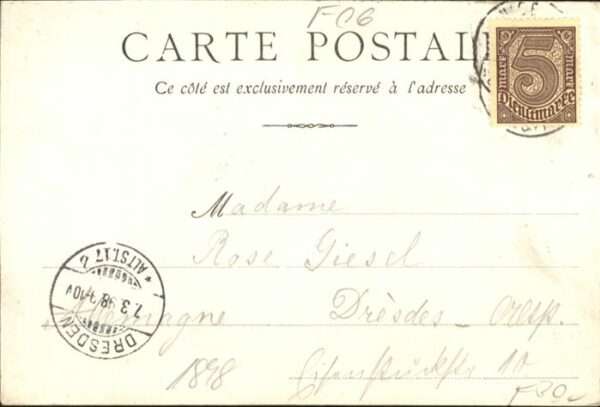 F06
CARTE POSTALE
Ce côté est exclusivement réservé à l'adresse
5
MARK
MARK
Dienstmarke
Madame
Rose Giesel
Allemagne Dresdes
1898 10
DRESDEN
ALTST.17
7.3.98
F30